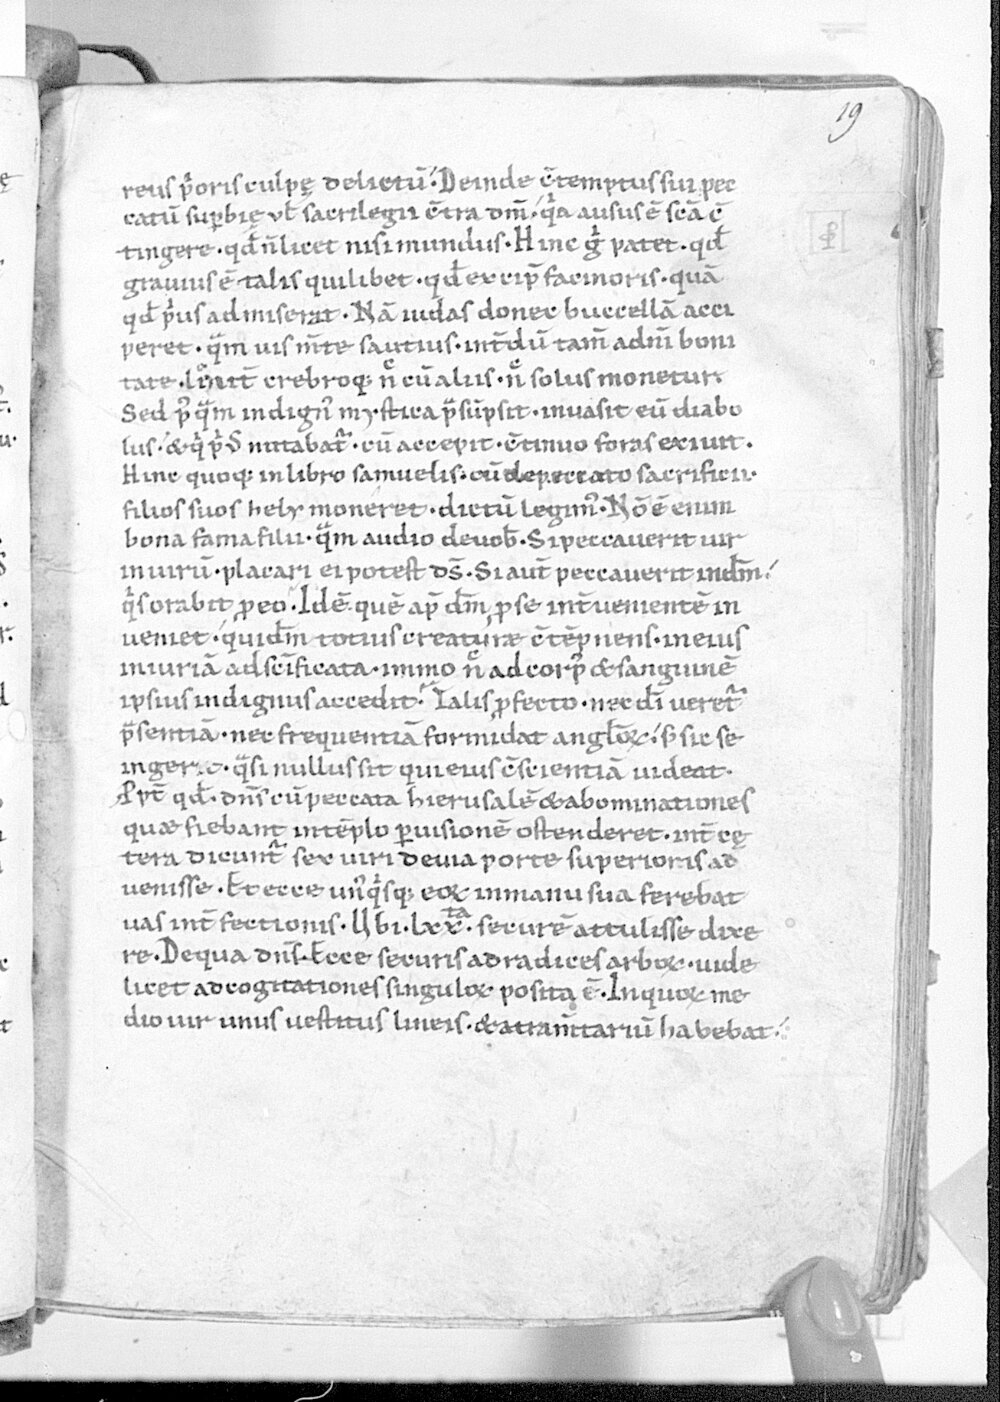 19
reus p̄oris culpę delictū. Deinde c̄temptus sui pec
catū sup̱bię vl̄ sacrilegii c̄tra dm̄. q̄a ausus ē scā c̄
tingere. qd̄ n̄ licet nisi mundus. Hinc ġ patet. qd̄
grauius ē talis quilibet. qd̄ excip̄ facinoris. quā
qd̄ p̄us admiserat. Nā iudas donec buccellā acci
peret. q̄m uis m̄te sautius. int̄dū tam̄ adn̄i boni
tate. crebroq; n̄ cū aliis. n̄ solus monetur.
Sed p̄q̄m indign᷒ mystica p̄sūpsit. inuasit eū diabo
lus. &q̄ mitabat᷑. cū accepit. c̄tinuo foras exiuit.
Hinc quoq; in libro samuelis. cū de peccato sacrificii.
filios suos hely moneret. dictū legim᷒. Nō ē enim
bona fama filii. q̄m audio de uob̄. Si peccauerit uir
in uirū. placari ei potest ds̄. Si aut̄ peccauerit in dm̄.
q̄s orabit p̱ eo. Idē quē ap̱ dm̄ p̱ se int̄uenientē in
ueniet. qui dm̄ totius creaturæ c̄tēpnens. in eius
iniuriā ad scīficata. immo n̄ ad corp᷒ & sanguinē
ipsius indignus accedit. Talis p̱fecto. nec dī ueret᷑
p̄sentiā. nec frequentiā formidat angl̄oꝝ. sic se
ingerit. q̄si nullus sit qui eius c̄scientiā uideat.
qd̄. dn̄s cū peccata hierusalē & abominationes
quæ fiebant in tēplo p̱ uisionē ostenderet. int̄ cę
tera dicunt᷑ sex uiri de uia porte superioris ad
uenisse. Et ecce un᷒q̄sq; eoꝝ in manu sua ferebat
uas int̄fectionis. Ubi. lxx.ta securē attulisse dixe
re. De qua dn̄s. Ecce securis ad radices arboꝝ. uide
licet ad cogitationes singuloꝝ posita ē. In quoꝝ me
dio uir unus uestitus lineis. & atram̄tariū habebat.